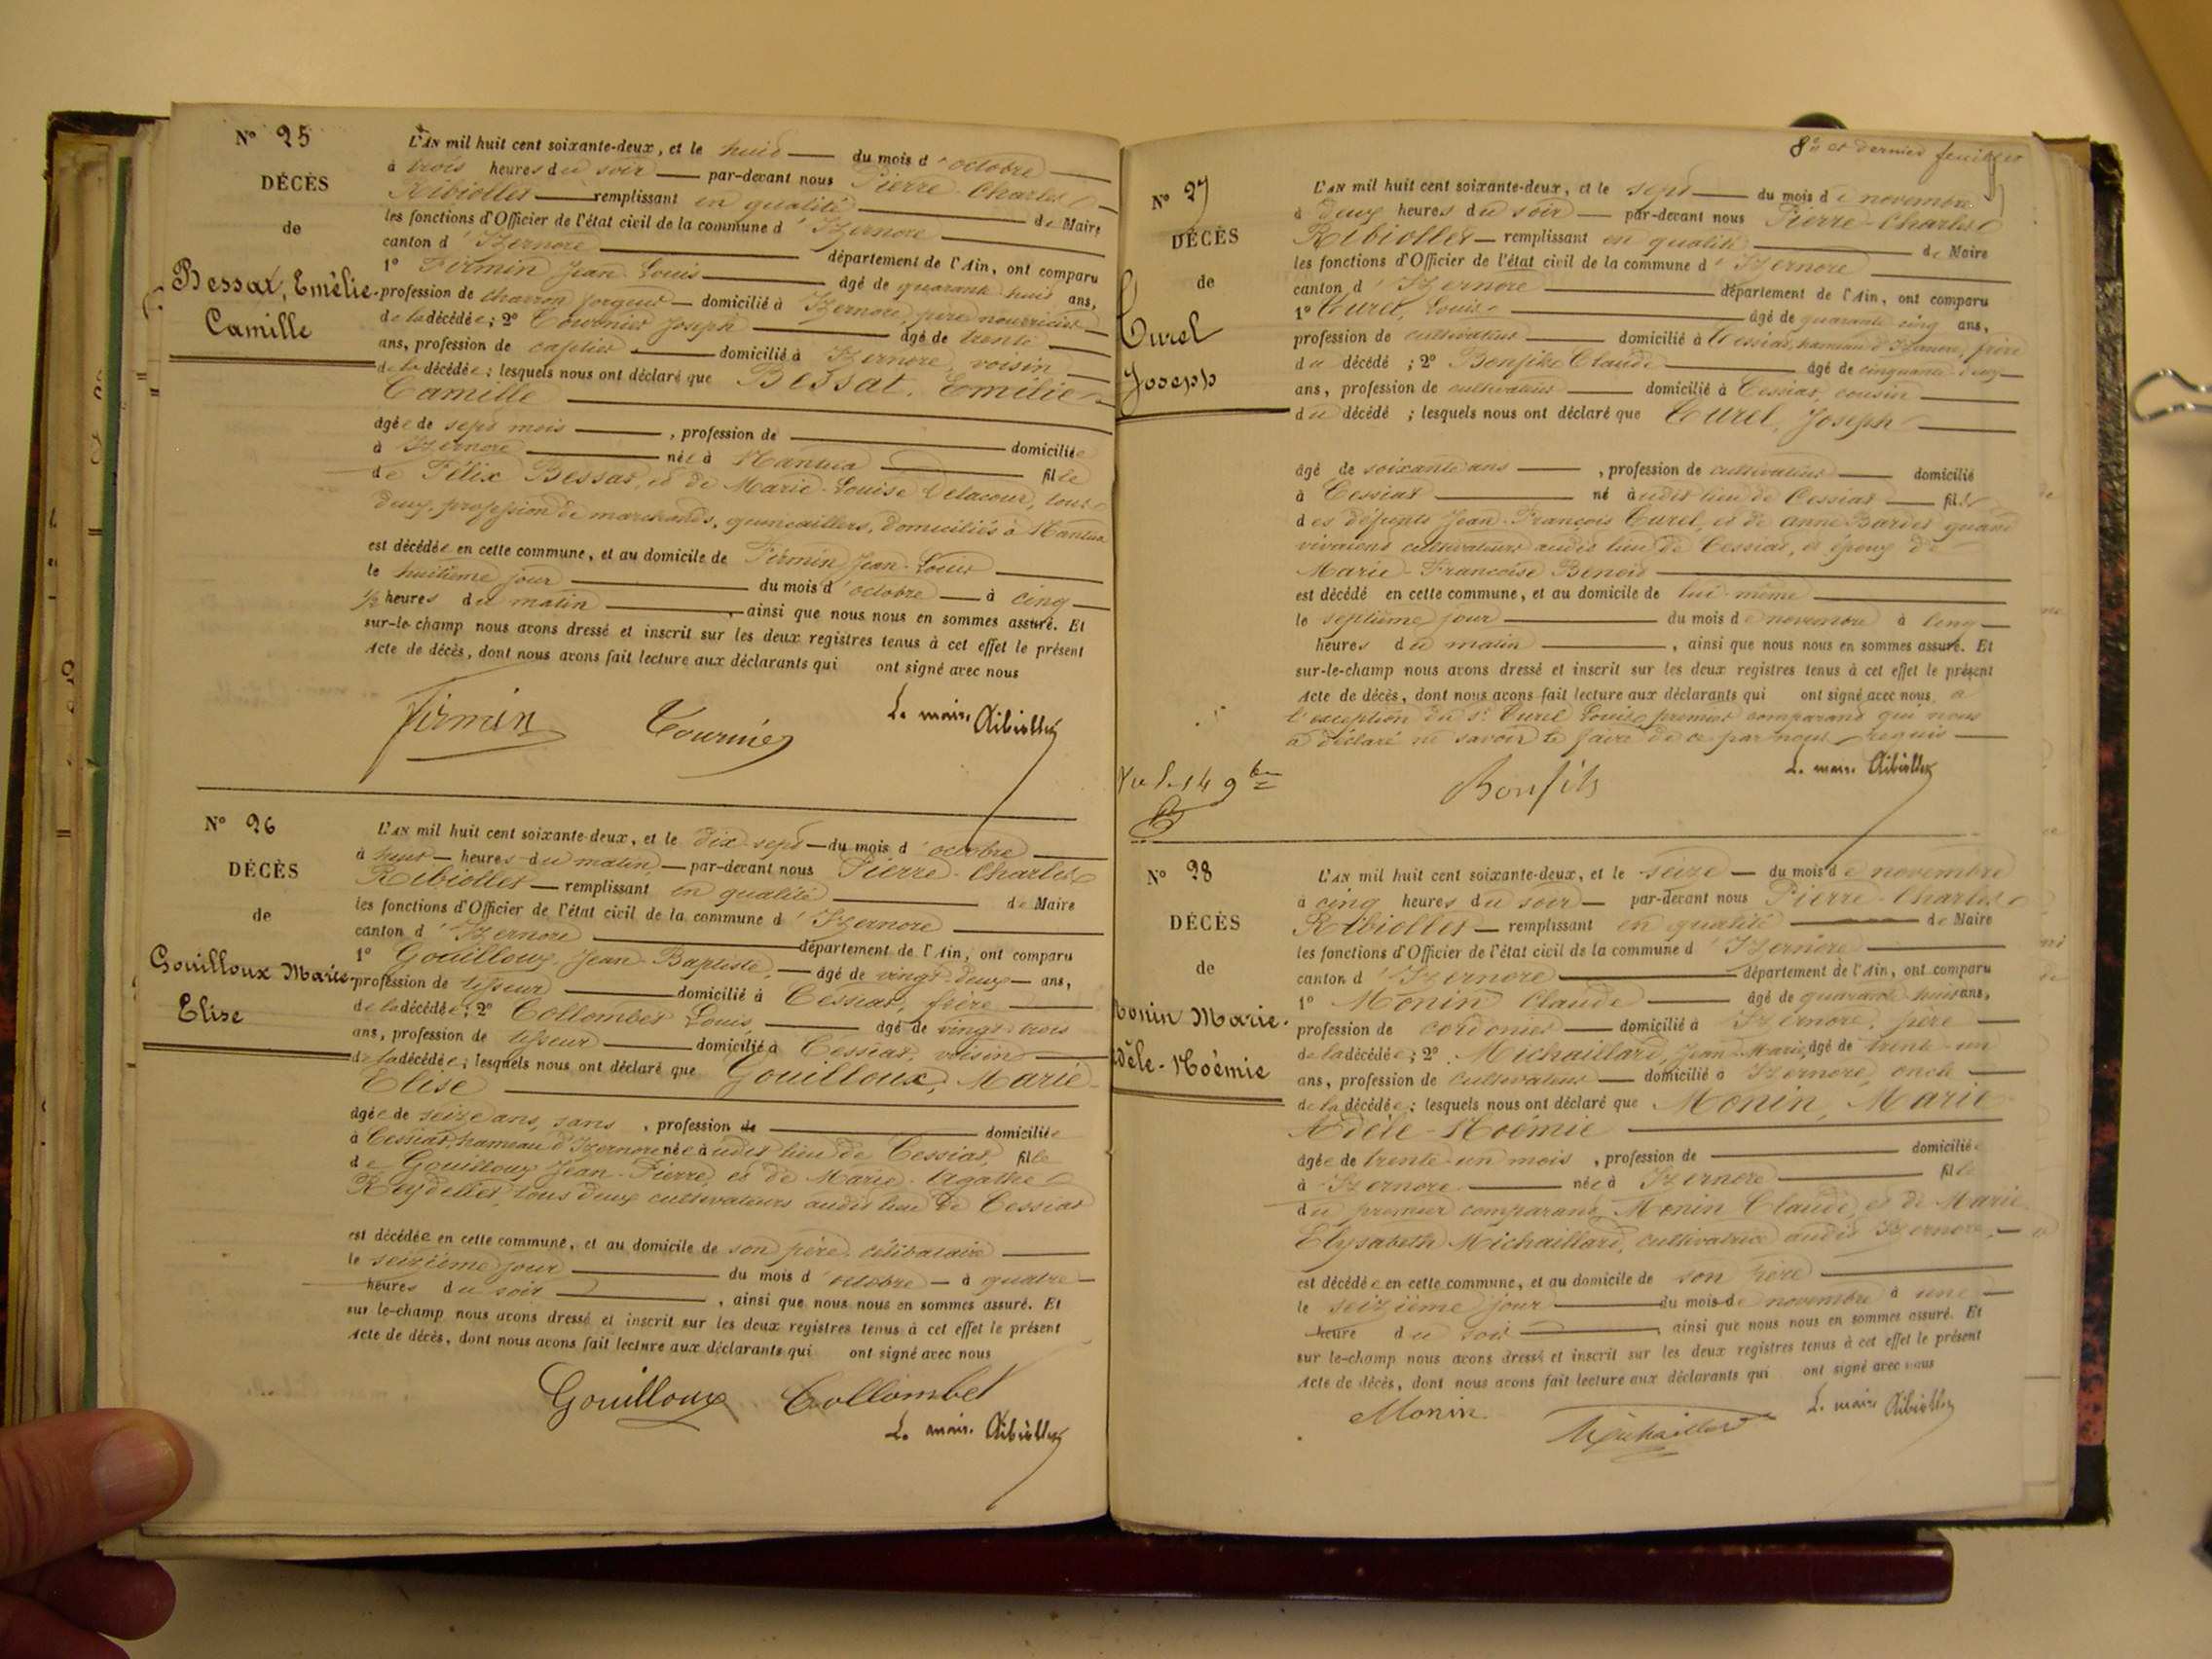 N° 25
DÉCÈS
de
Bessat, Emélie-
Camille
L'AN mil huit cent soixante-deux, et le huit du mois d'octobre
à trois heures du soir par-devant nous Pierre-Charles
Ribiollet remplissant en qualité de Maire
les fonctions d'Officier de l'état civil de la commune d'Izernore
canton d'Izernore département de l'Ain, ont comparu
1° Firmin Jean-Louis âgé de quarante huit ans,
profession de charron forgeur domicilié à Izernore, père nourricier
de la décédée; 2° Tournier Joseph âgé de trente
ans, profession de domicilié à Izernore, voisin
de la décédée; lesquels nous ont déclaré que Bessat, Emélie
Camille
âgée de sept mois, profession de domiciliée
à Izernore née à Nantua fille
de Félix Bessat, et de Marie-Louise Delacour, tous
deux, profession de marchands, quincaillers, domiciliés à Nantua
est décédée en cette commune, et au domicile de Firmin Jean-Louis
le huitième jour du mois d'octobre à cinq
1/2 heures du matin, ainsi que nous nous en sommes assuré. Et
sur-le-champ nous avons dressé et inscrit sur les deux registres tenus à cet effet le présent
Acte de décès, dont nous avons fait lecture aux déclarants qui ont signé avec nous
Firmin Tournier Le maire Ribiollet
N° 26
DÉCÈS
de
Gouilloux Marie-
Elise
L'AN mil huit cent soixante-deux, et le dix-sept du mois d'octobre
à huit heures du matin, par-devant nous Pierre-Charles
Ribiollet remplissant en qualité de Maire
les fonctions d'Officier de l'état civil de la commune d'Izernore
canton d'Izernore département de l'Ain, ont comparu
1° Gouilloux, Jean-Baptiste, âgé de vingt-deux ans,
profession de tisseur domicilié à Cessiat, frère
de la décédée; 2° Collombet Louis, âgé de vingt-trois
ans, profession de tisseur domicilié à Cessiat, voisin
de la décédée; lesquels nous ont déclaré que Gouilloux, Marie-
Elise
âgée de seize ans, sans, profession de domiciliée
à Cessiat, hameau d'Izernore née audit lieu de Cessiat, fille
de Gouilloux Jean-Pierre, et de Marie-Agathe
Reydellet, tous deux cultivateurs audit lieu de Cessiat
est décédée en cette commune, et au domicile de son père, célibataire
le seizième jour du mois d'octobre à quatre
heures du soir, ainsi que nous nous en sommes assuré. Et
sur-le-champ nous avons dressé et inscrit sur les deux registres tenus à cet effet le présent
Acte de décès, dont nous avons fait lecture aux déclarants qui ont signé avec nous
Gouilloux Collombet
Le maire Ribiollet
8e et dernier feuillet
N° 27
DÉCÈS
de
Curel
Joseph
L'AN mil huit cent soixante-deux, et le sept du mois de novembre
à deux heures du soir par-devant nous Pierre-Charles
Ribiollet remplissant en qualité de Maire
les fonctions d'Officier de l'état civil de la commune d'Izernore
canton d'Izernore département de l'Ain, ont comparu
1° Curel, Louis âgé de quarante cinq ans,
profession de cultivateur domicilié à Cessiat, hameau d'Izernore, frère
du décédé; 2° Bonfils Claude âgé de cinquante deux
ans, profession de cultivateur domicilié à Cessiat, cousin
du décédé; lesquels nous ont déclaré que Curel, Joseph
âgé de soixante ans, profession de cultivateur domicilié
à Cessiat né audit lieu de Cessiat fils
des défunts Jean-François Curel, et de Anne quand
vivaient cultivateurs audit lieu de Cessiat, et époux de
Marie-Françoise Benoit
est décédé en cette commune, et au domicile de lui-même
le septième jour du mois de novembre à cinq
heures du matin, ainsi que nous nous en sommes assuré. Et
sur-le-champ nous avons dressé et inscrit sur les deux registres tenus à cet effet le présent
Acte de décès, dont nous avons fait lecture aux déclarants qui ont signé avec nous, à
l'exception du sr Curel Louis, premier comparant qui nous
a déclaré ne savoir le faire de ce par nous requis
Bonfils Le maire Ribiollet
Vu le 14 9bre
N° 28
DÉCÈS
de
Monin Marie-
Adèle-Noémie
L'AN mil huit cent soixante-deux, et le seize du mois de novembre
à cinq heures du soir par-devant nous Pierre-Charles
Ribiollet remplissant en qualité de Maire
les fonctions d'Officier de l'état civil de la commune d'Izernore
canton d'Izernore département de l'Ain, ont comparu
1° Monin Claude âgé de quarante huit ans,
profession de cordonier domicilié à Izernore, père
de la décédée; 2° Michaillard, Jean-Marie, âgé de trente-un
ans, profession de cultivateur domicilié à Izernore, oncle
de la décédée; lesquels nous ont déclaré que Monin, Marie
Adèle-Noémie
âgée de trente-un mois, profession de domiciliée
à Izernore née à Izernore fille
du premier comparant, Monin Claude, et de Marie
Elysabeth Michaillard, cultivatrice audit Izernore,
est décédée en cette commune, et au domicile de son père
le seizième jour du mois de novembre à une
heure du soir, ainsi que nous nous en sommes assuré. Et
sur-le-champ nous avons dressé et inscrit sur les deux registres tenus à cet effet le présent
Acte de décès, dont nous avons fait lecture aux déclarants qui ont signé avec nous
Monin Michaillard Le maire Ribiollet